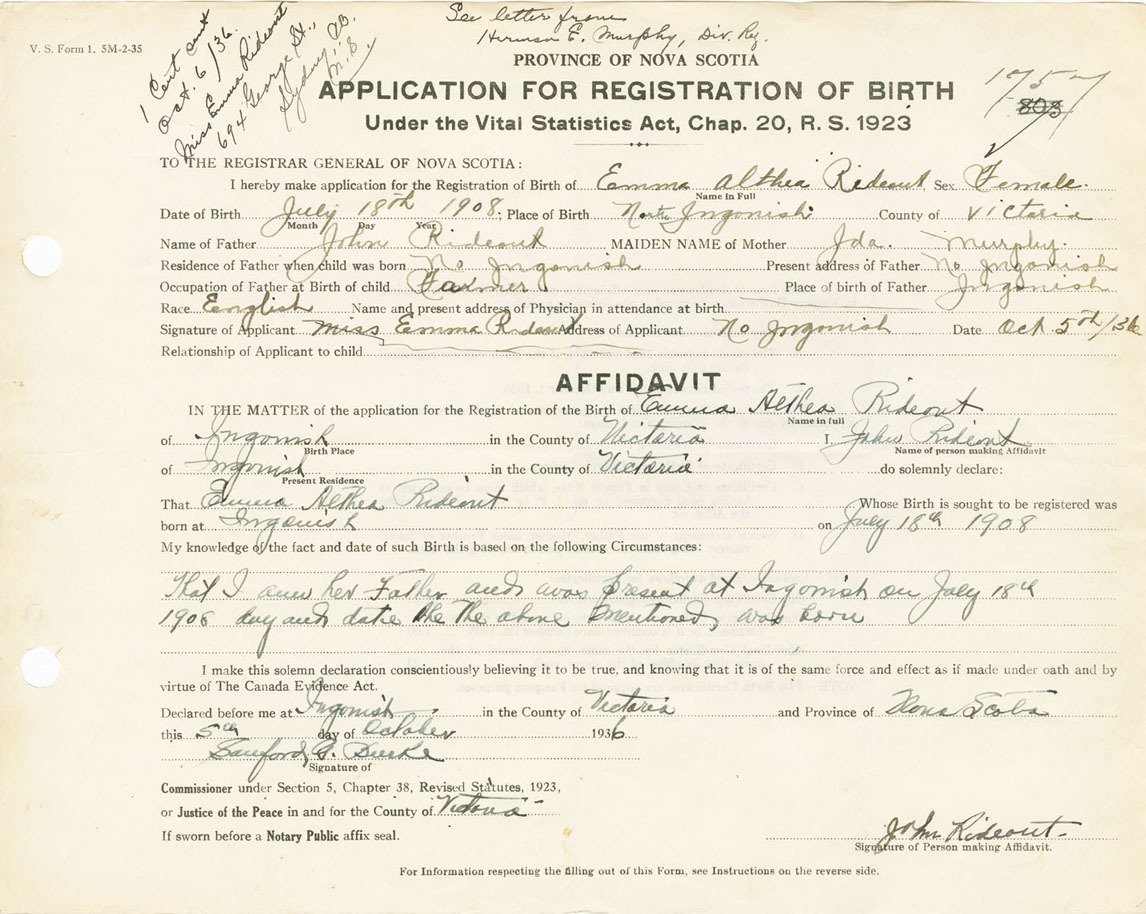 V. S. Form 1. 5M-2-35
1 Cent cert
Oct. 6/36.
Miss Emma Rideout
694 George St.,
Sydney, CB.
N.S
See letter from
Herman E. Murphy, Div. Reg.
PROVINCE OF NOVA SCOTIA
APPLICATION FOR REGISTRATION OF BIRTH
1757
803
Under the Vital Statistics Act, Chap. 20, R. S. 1923
TO THE REGISTRAR GENERAL OF NOVA SCOTIA:
I hereby make application for the Registration of Birth of Emma Althea Rideout Sex Female.
Name in Full
Date of Birth July 18th 1908; Place of Birth North Ingonish County of Victoria
Month Day Year
Name of Father John Rideout MAIDEN NAME of Mother Ida Murphy.
Residence of Father when child was born No Ingonish Present address of Father No Ingonish
Occupation of Father at Birth of child Farmer Place of birth of Father Ingonish
Race English Name and present address of Physician in attendance at birth
Signature of Applicant Miss Emma Rideout Address of Applicant No Ingonish Date Oct 5th/36
Relationship of Applicant to child
AFFIDAVIT
IN THE MATTER of the application for the Registration of the Birth of Emma Althea Rideout
Name in full
of Ingonish in the County of Victoria I John Rideout
Birth Place Name of person making Affidavit
of Ingonish in the County of Victoria do solemnly declare:
Present Residence
That Emma Althea Rideout Whose Birth is sought to be registered was
born at Ingonish on July 18th 1908
My knowledge of the fact and date of such Birth is based on the following Circumstances:
That I am her Father and was present at Ingonish on July 18th
1908 day and date the the above mentioned was born
I make this solemn declaration conscientiously believing it to be true, and knowing that it is of the same force and effect as if made under oath and by
virtue of The Canada Evidence Act.
Declared before me at Ingonish in the County of Victoria and Province of Nova Scotia
this 5th day of October 1936
Sanford G. Burke
Signature of
Commissioner under Section 5, Chapter 38, Revised Statutes, 1923,
or Justice of the Peace in and for the County of Victoria
If sworn before a Notary Public affix seal.
John Rideout
Signature of Person making Affidavit.
For Information respecting the filling out of this Form, see Instructions on the reverse side.